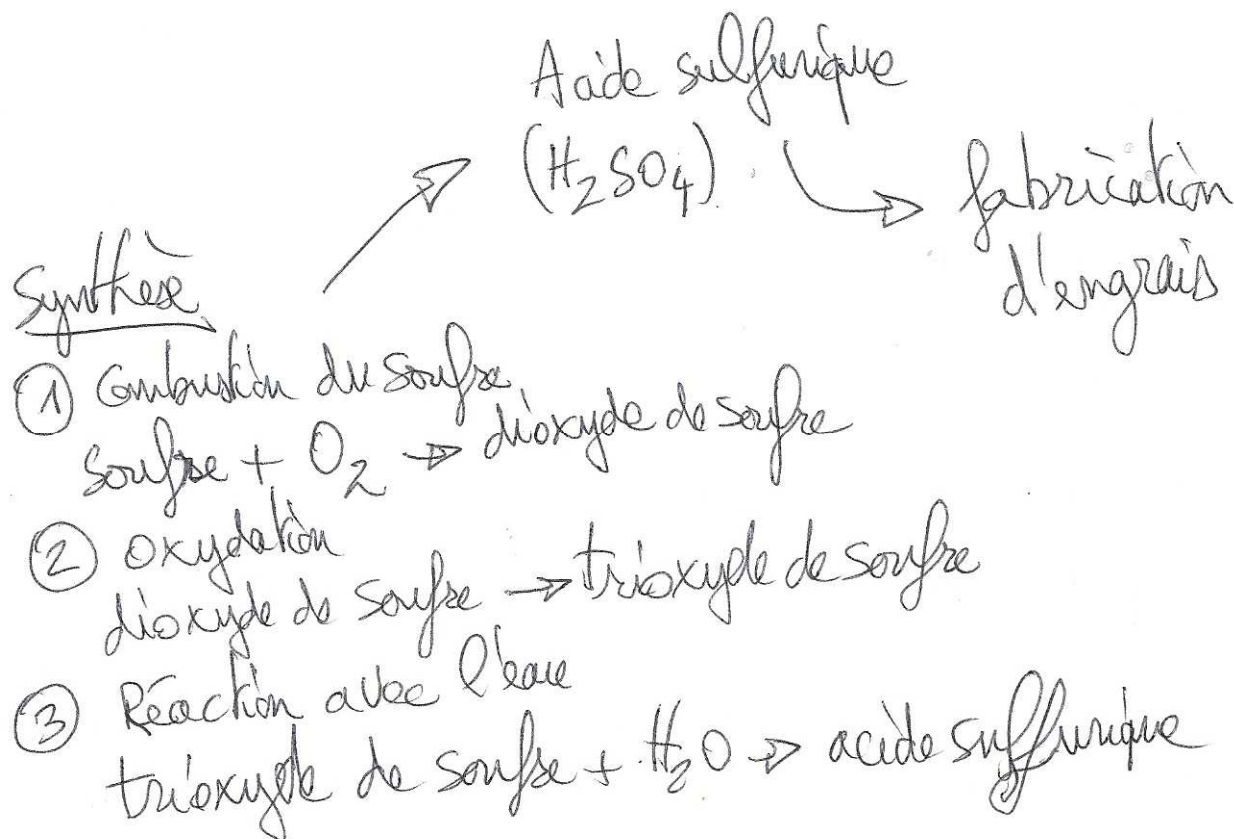 Acide sulfurique
(H₂SO₄)
fabrication
d'engrais
Synthèse
① Combustion du soufre
soufre + O₂ → dioxyde de soufre
② oxydation
dioxyde de soufre → trioxyde de soufre
③ Réaction avec l'eau
trioxyde de soufre + H₂O → acide sulfurique